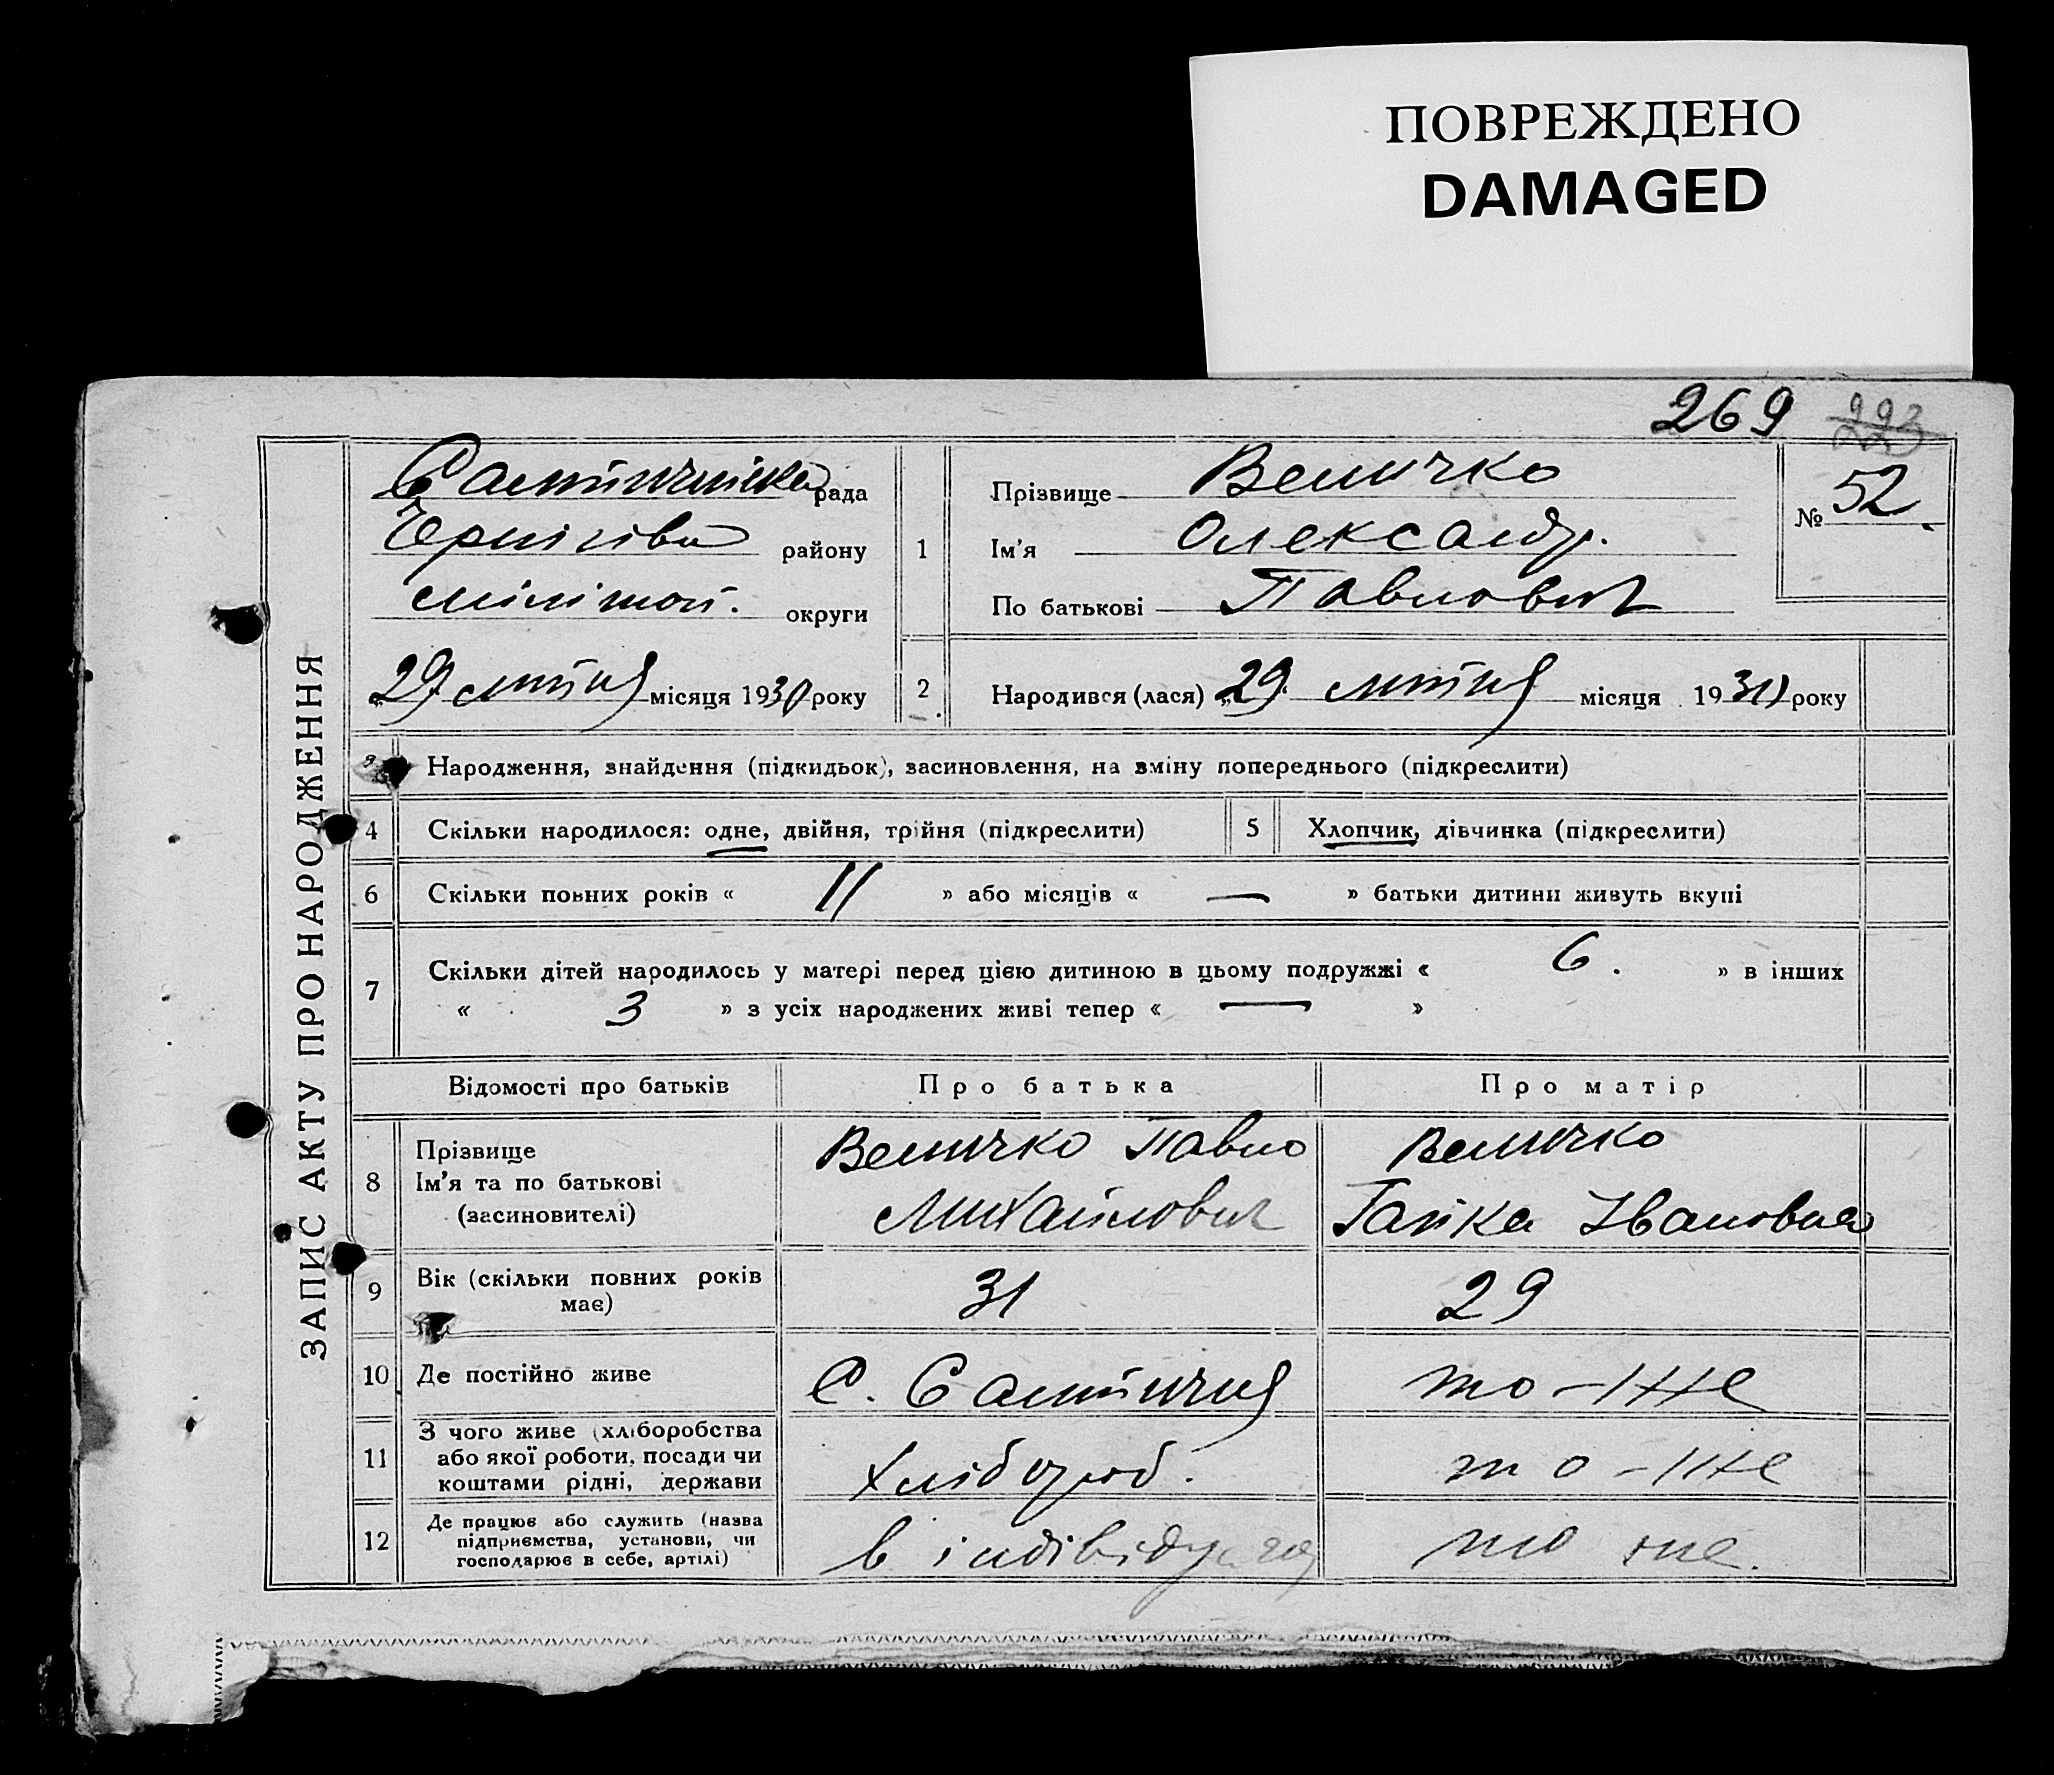 ПОВРЕЖДЕНО
DAMAGED
269 223
ЗАПИС АКТУ ПРО НАРОДЖЕННЯ
рада
Чернігівс району
округи
29 липня місяця 1930 року
1
Прізвище Величко
Ім'я Олександр.
По батькові Павлович
№ 52.
2
Народився (лася) „29. липня місяця 1930 року
Народження, знайдення (підкидьок), засиновлення, на зміну попереднього (підкреслити)
4 Скільки народилося: одне, двійня, трійня (підкреслити) 5 Хлопчик, дівчинка (підкреслити)
6 Скільки повних років « 11 » або місяців « — » батьки дитини живуть вкупі
7 Скільки дітей народилось у матері перед цією дитиною в цьому подружжі « 6. » в інших
« 3 » з усіх народжених живі тепер « — »
Відомості про батьків Про батька Про матір
8 Прізвище
Ім'я та по батькові
(засиновителі)
Величко Павло
Михайлович
Величко
Ганка Івановна
9 Вік (скільки повних років
має)
31 29
10 Де постійно живе
с. то-же
11 З чого живе (хліборобства
або якої роботи, посади чи
коштами рідні, держави
Хлібороб. то-же
12 Де працює або служить (назва
підприємства, установи, чи
господарює в себе, артілі)
в то же.